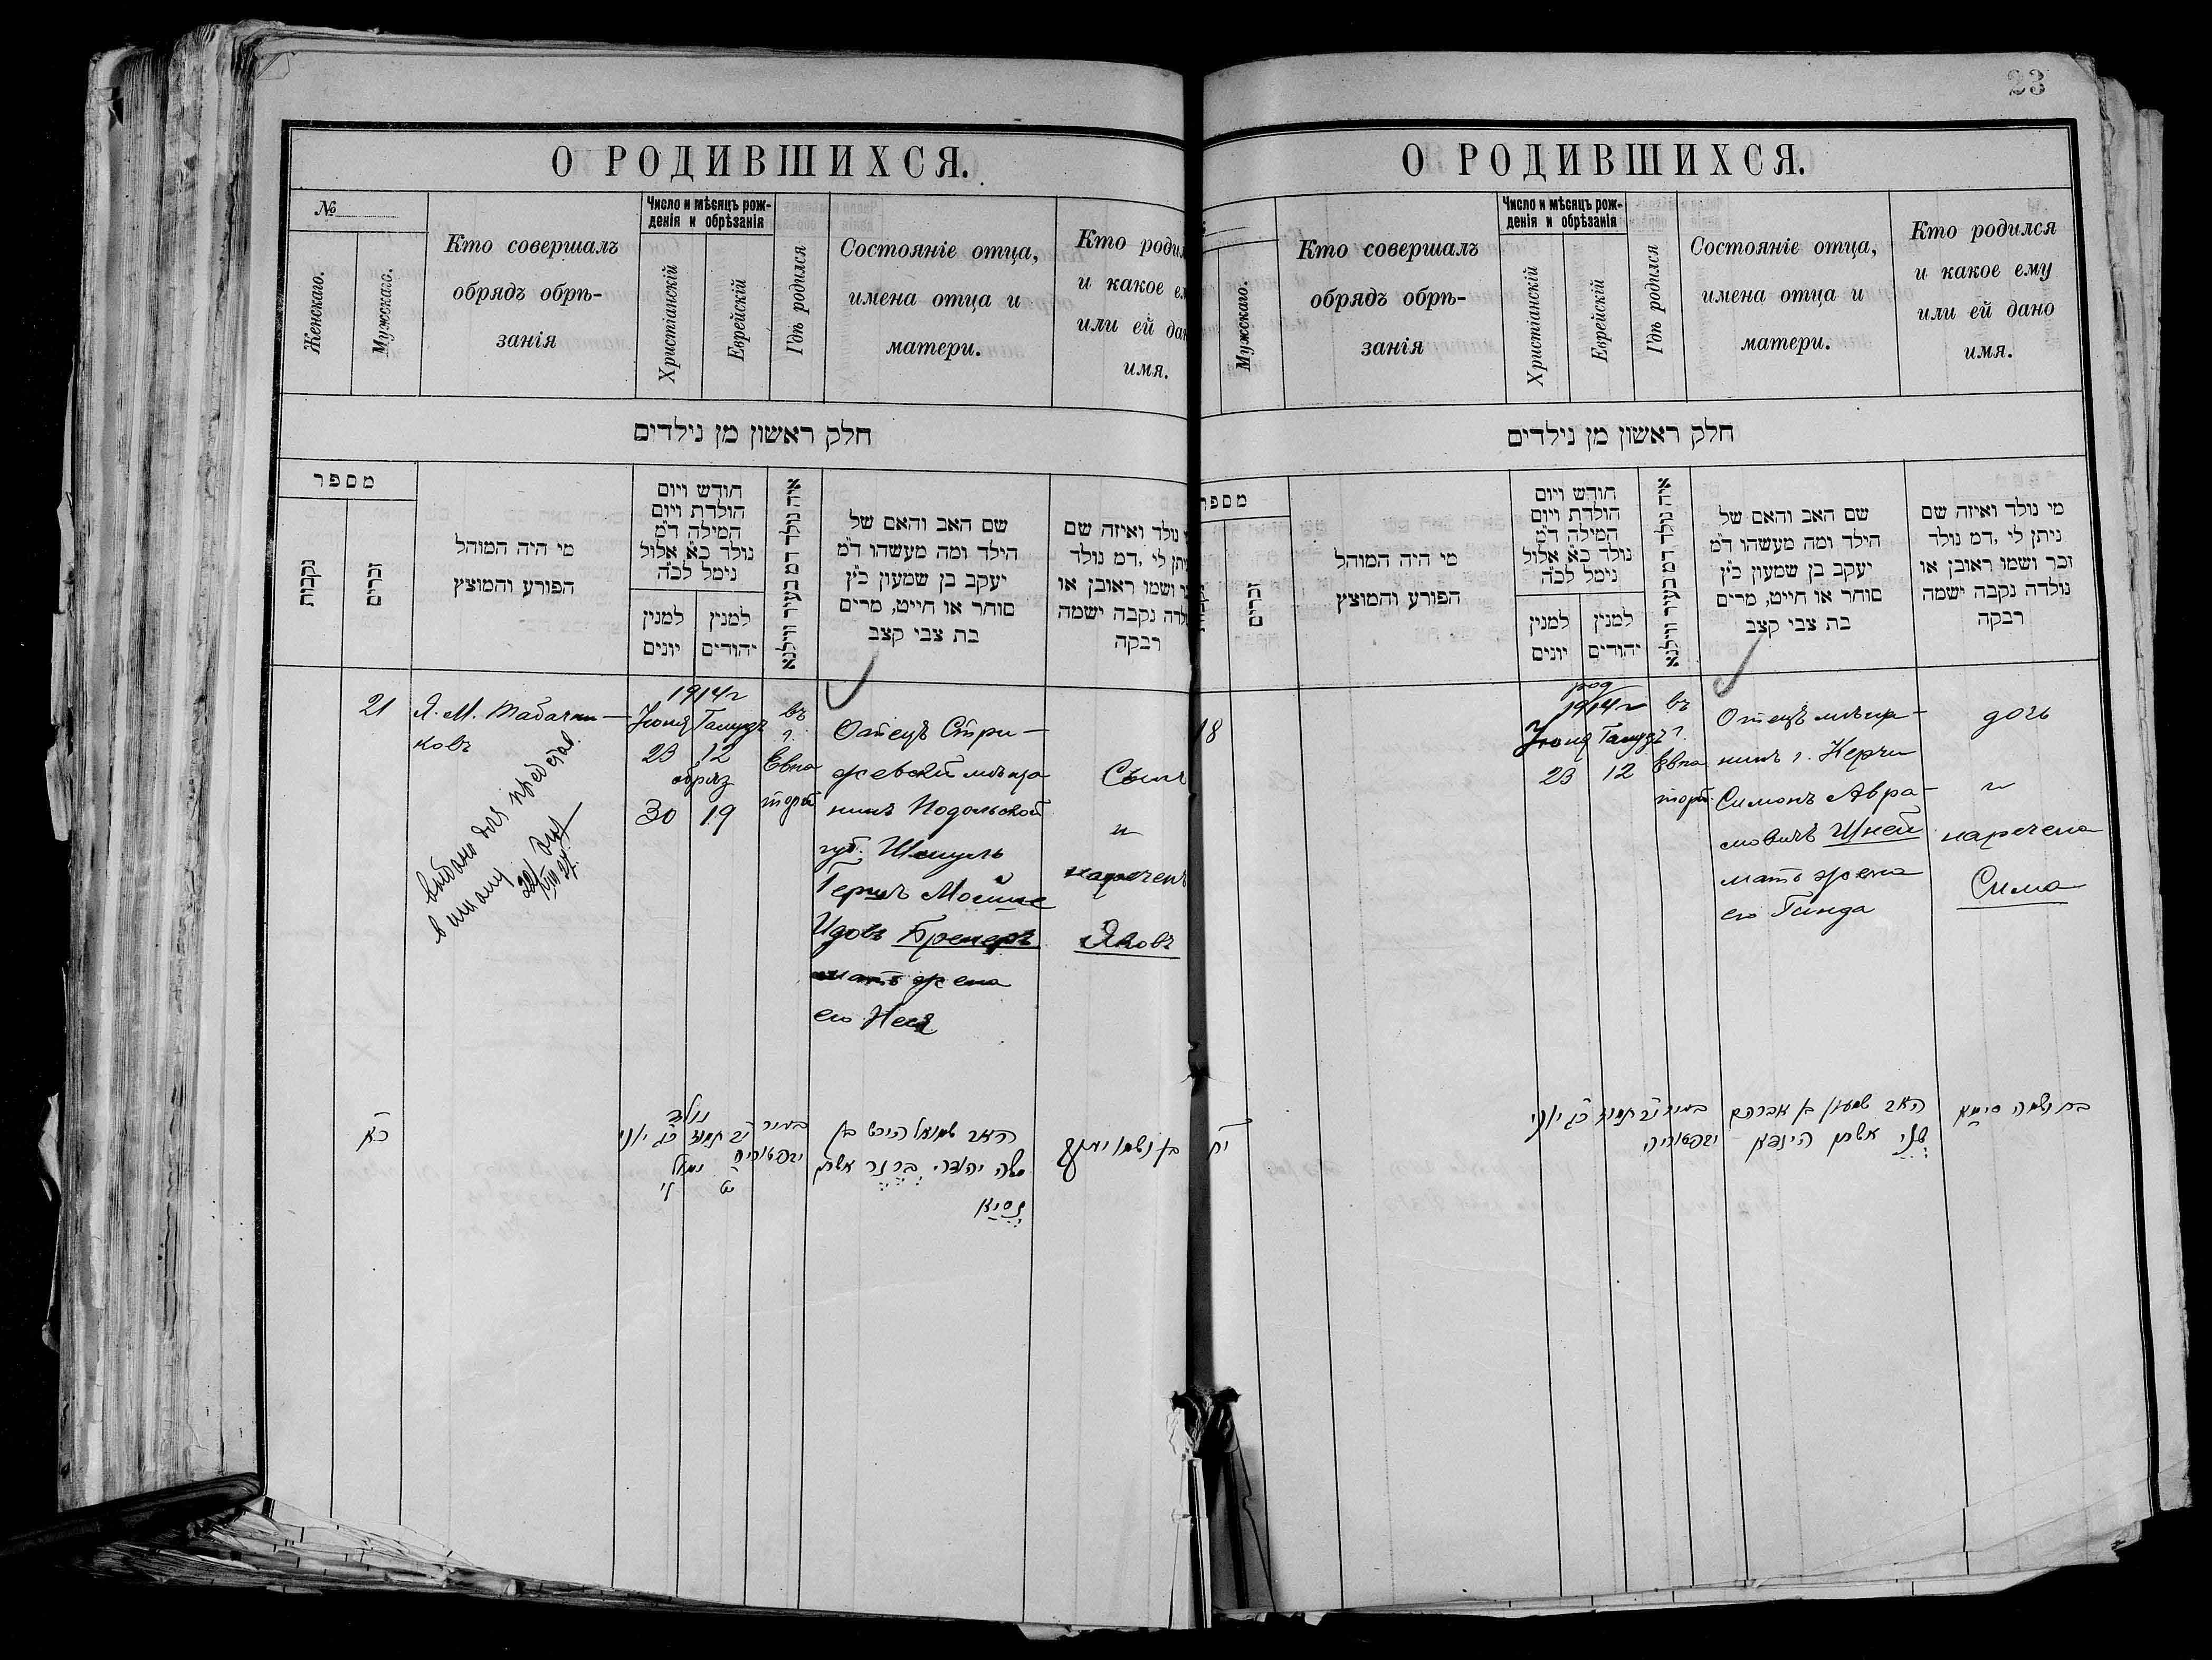 23
О РОДИВШИХСЯ.
№
Женскаго.
Мужскаго.
Кто совершалъ
обрядъ обрѣ-
занія
Число и мѣсяцъ рож-
денія и обрѣзанія
Христіанскій
Еврейскій
Гдѣ родился
Состояніе отца,
имена отца и
матери.
Кто родил
и какое ем
или ей дан
имя.
חלק ראשון מן נילדים
מספר
נקבות
זכרים
מי היה המוהל
הפורע והמוצץ
חודש ויום
הולדת ויום
המילה ד״מ
נולד כ״א אלול
נימל לכ״ה
למנין
יונים
למנין
יהודים
איה נולד דמ בעיר ווילנא
שם האב והאם של
הילד ומה מעשהו ד״מ
יעקב בן שמעון כ״ץ
סוחר או חייט, מרים
בת צבי קצב
נולד ואיזה שם
יתן לי ,דמ נולד
ושמו ראובן או
לדה נקבה ישמה
רבקה
21
Я. М. Табачни-
ковъ
выдано для представ
в школу
1914 г
Іюня Тамузъ
23 12
обрѣз
30 19
въ
г.
Евпа
торіи
Отецъ Стри-
жевскій мѣща
нинъ Подольской
губ. Шмуль
Гершъ Мойше
Идовъ Бренеръ
мать жена
его Неся
Сынъ
и
нареченъ
Яковъ
כ״א
נולד
כ״ג יוני
י״ב תמוז
נמול
ל׳
בעיר
יבפטוריה
האב שמואל הירש בן
משה יהודה ברנר אשתו
נסיא
בן ושמו יעקב
О РОДИВШИХСЯ.
Мужскаго.
Кто совершалъ
обрядъ обрѣ-
занія
Число и мѣсяцъ рож-
денія и обрѣзанія
Христіанскій
Еврейскій
Гдѣ родился
Состояніе отца,
имена отца и
матери.
Кто родился
и какое ему
или ей дано
имя.
חלק ראשון מן נילדים
מספר
זכרים
מי היה המוהל
הפורע והמוצץ
חודש ויום
הולדת ויום
המילה ד״מ
נולד כ״א אלול
נימל לכ״ה
למנין
יונים
למנין
יהודים
איה נולד דמ בעיר ווילנא
שם האב והאם של
הילד ומה מעשהו ד״מ
יעקב בן שמעון כ״ץ
סוחר או חייט, מרים
בת צבי קצב
מי נולד ואיזה שם
ניתן לי ,דמ נולד
זכר ושמו ראובן או
נולדה נקבה ישמה
רבקה
18
род
1914 г
Іюня Тамузъ
23 12
въ
г.
Евпа
торіи
Отецъ мѣща-
нинъ г. Керчи
Симонъ Авра-
мовичъ Шней
мать жена
его Гинда
дочь
и
наречена
Сима
י״ח
כ״ג יוני
י״ב תמוז
בעיר
יבפטוריה
האב שמעון בן אברהם
שני אשתו הינדא
בת ושמה סימא